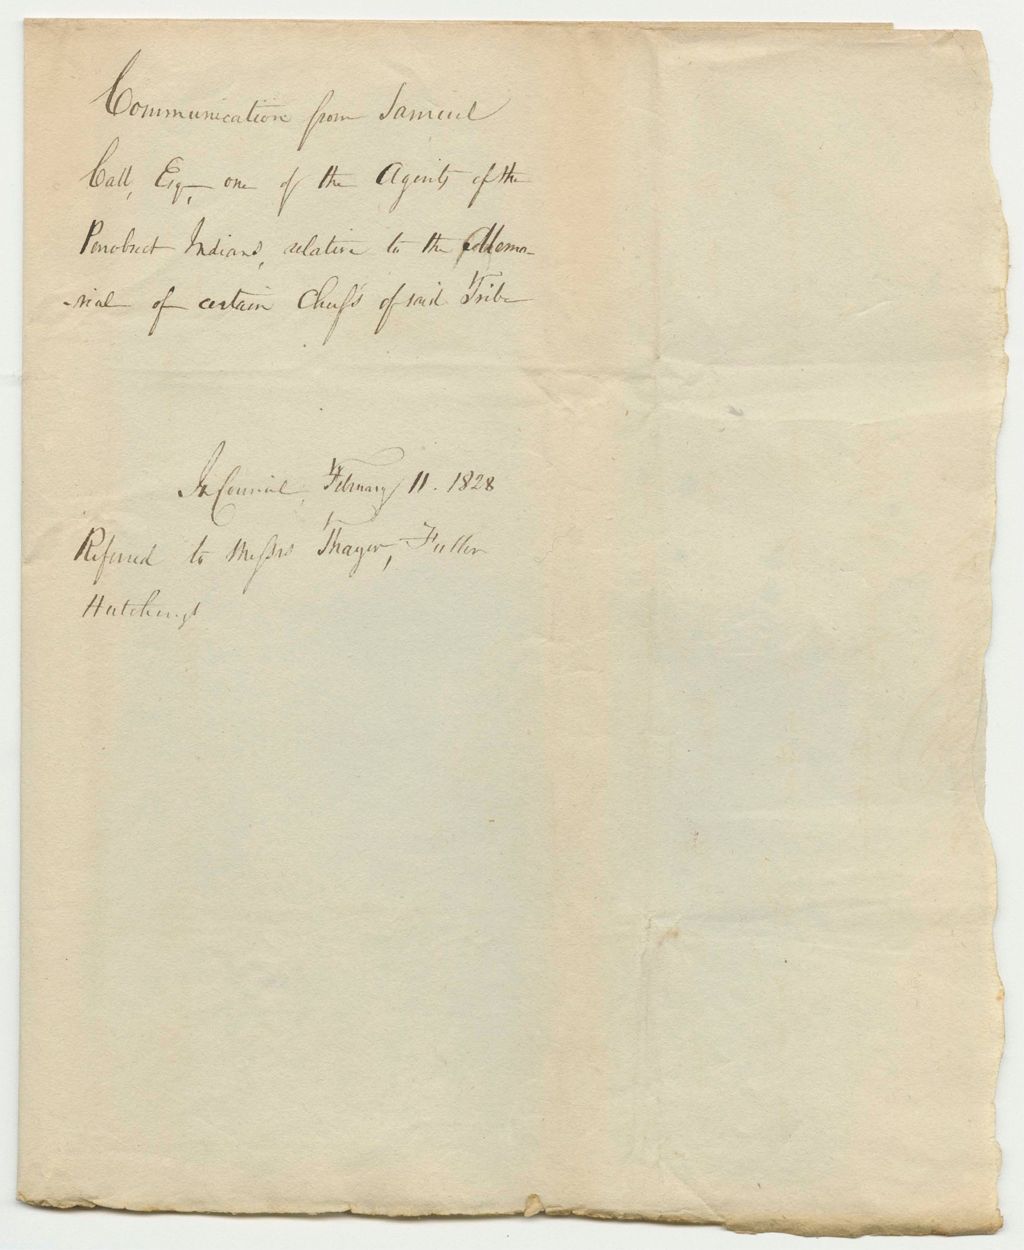 Communication from Samuel
Call, Esq, one of the Agents of the
Penobscot Indians, relative to the Memo-
-rial of certain Chiefs of said Tribe
In Council, February 11. 1828
Referred to Messrs Thayer, Fuller
Hutchings